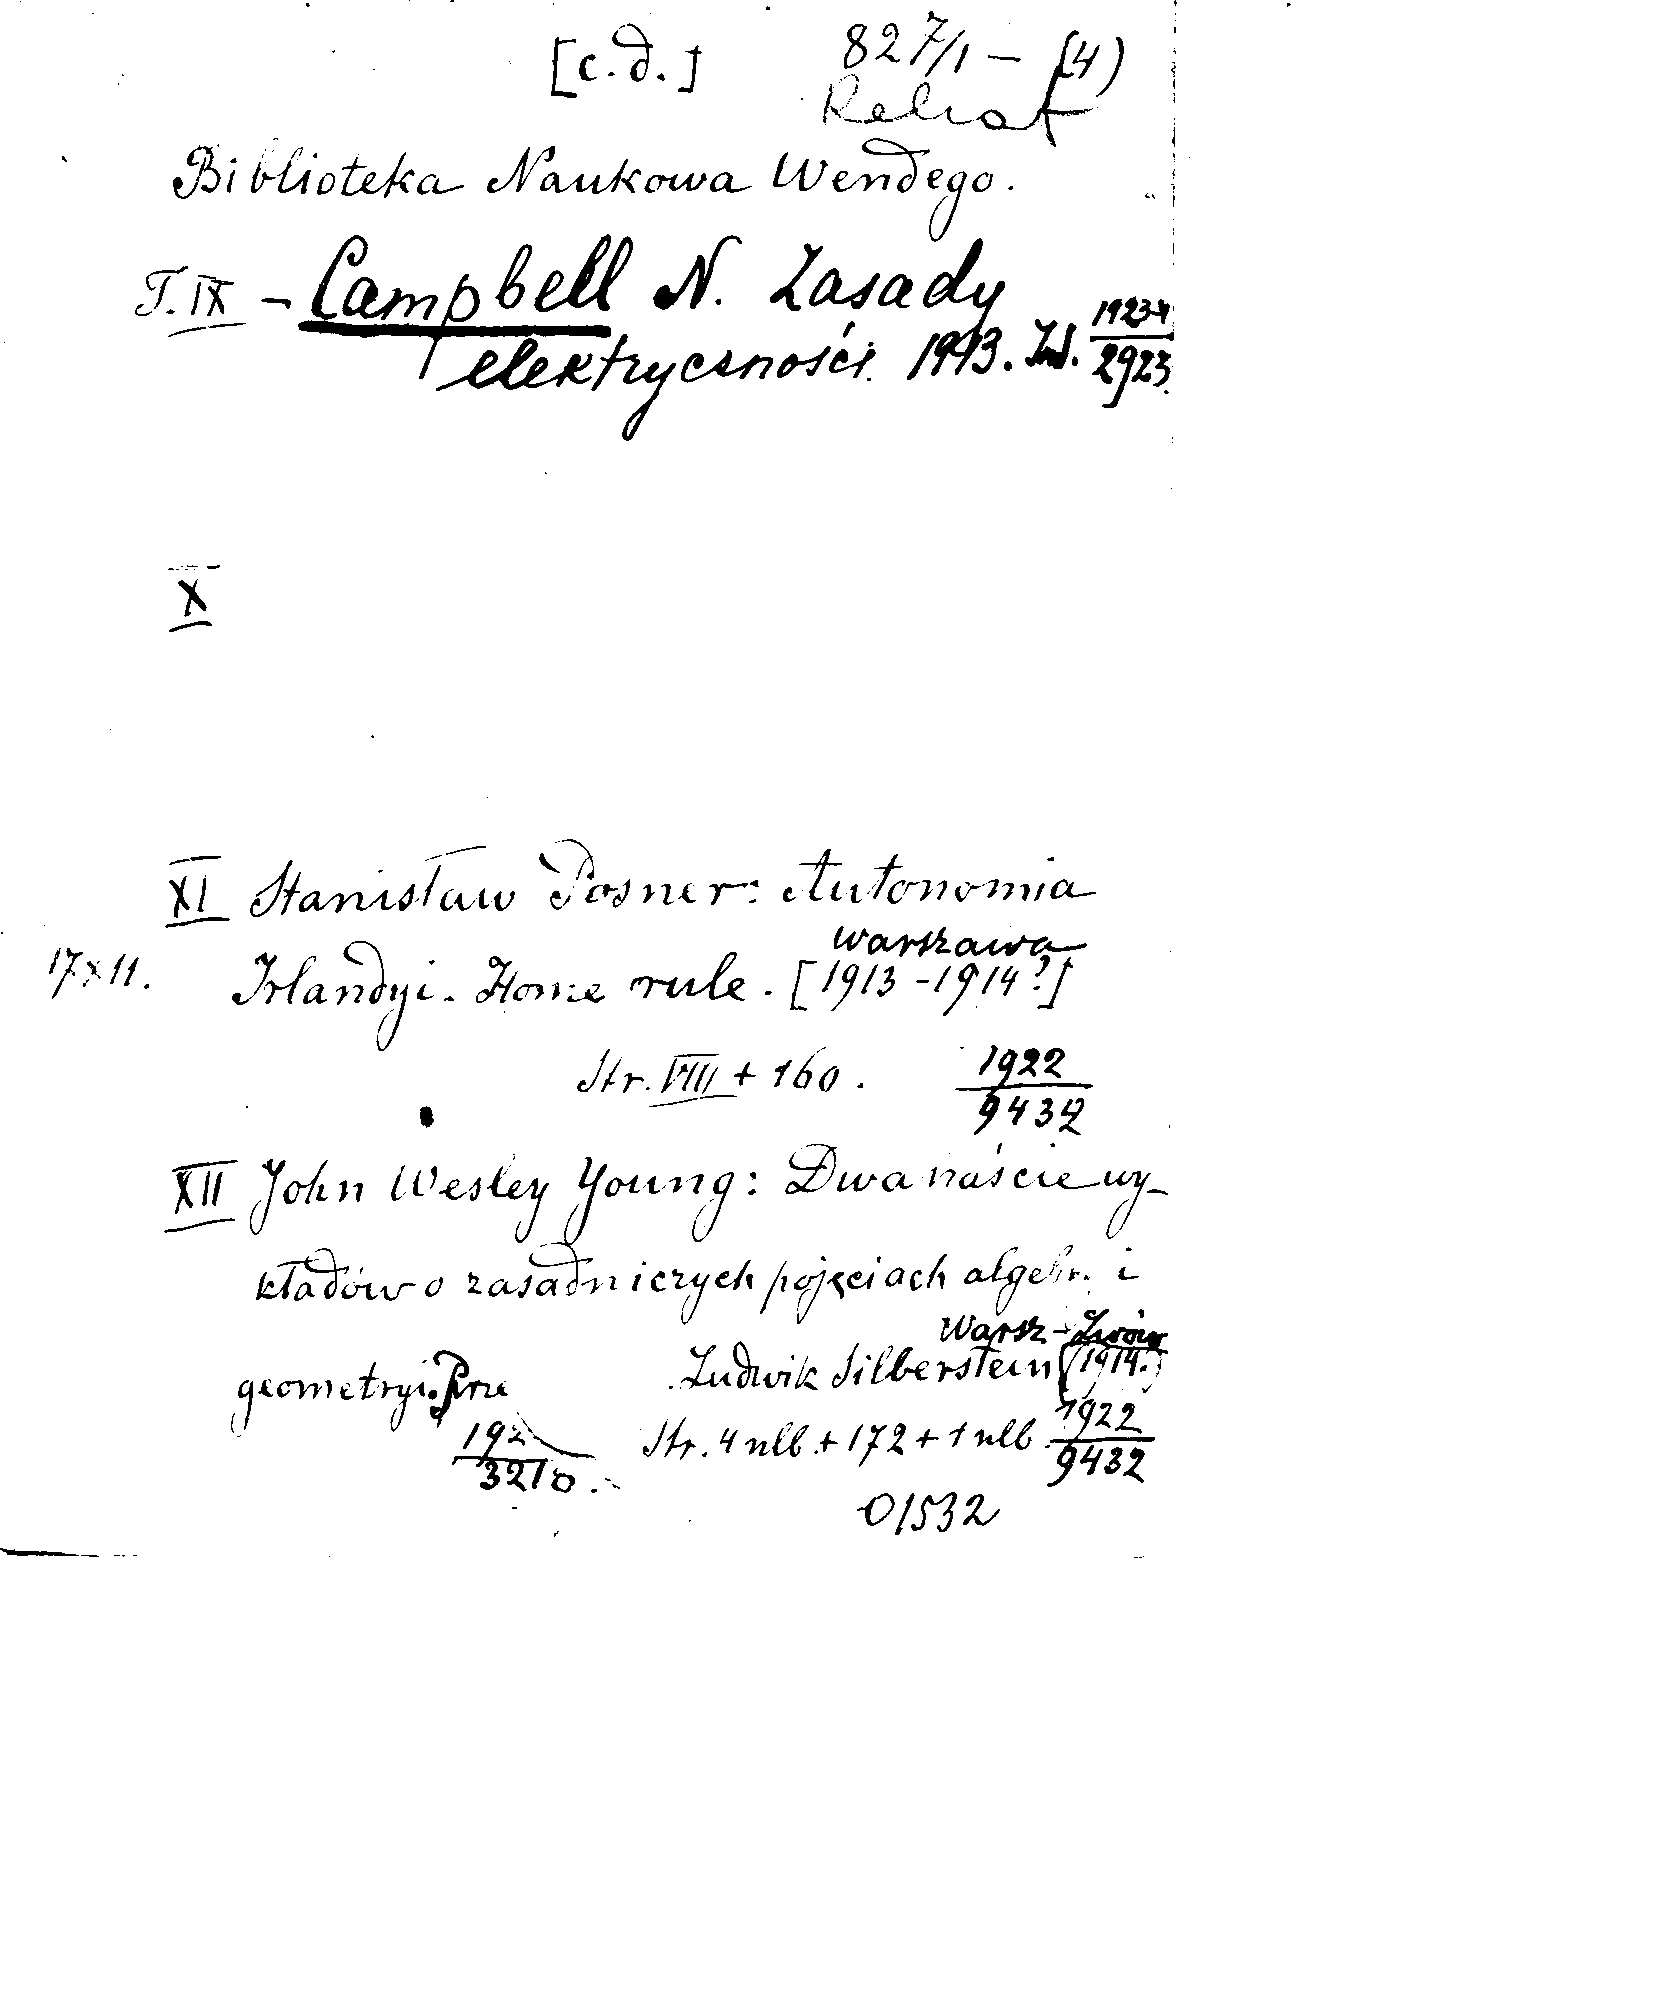 [c.d.] 827/1 — (4)
Biblioteka Naukowa Wendego.
T. IX — Campbell N. Zasady
elektryczności. 1913. 2923
X
XI Stanisław Posner: Autonomia
Warszawa
17x11. Irlandyi. Home rule. [1913-1914?]
Str. VIII + 160. 1922
9432
XII John Wesley Young: Dwanaście wy-
kładów o zasadniczych pojęciach algebr. i
Warsz-Lwów
geometryi. Prze Ludwik Silberstein (1914.)
Str. 4 nlb. + 172 + 1 nlb. 1922
3210. 9432
01532